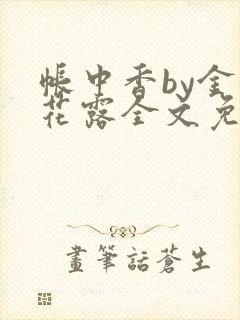 帐中香by金
花露全文免
畫筆話蒼生